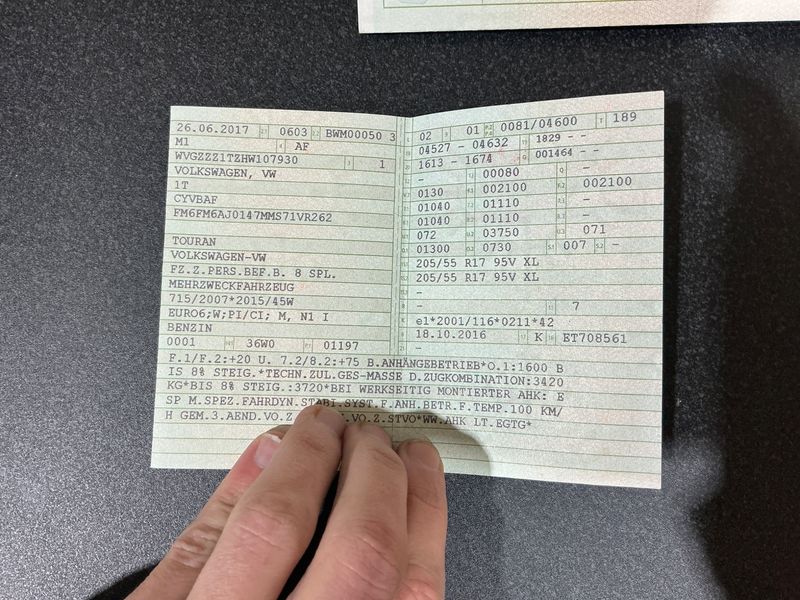 26.06.2017 0603 BWM00050 3
M1 AF
WVGZZZ1TZHW107930 1
VOLKSWAGEN, VW
1T
CYVBAF
FM6FM6AJ0147MMS71VR262
TOURAN
VOLKSWAGEN-VW
FZ.Z.PERS.BEF.B. 8 SPL.
MEHRZWECKFAHRZEUG
715/2007*2015/45W
EURO6;W;PI/CI; M, N1 I
BENZIN
0001 36W0 01197
02 01 0081/04600 189
04527 - 04632 1829 - -
1613 - 1674 001464 - -
- 00080 -
0130 002100 002100
01040 01110 -
01040 01110 -
072 03750 071
01300 0730 007 -
205/55 R17 95V XL
205/55 R17 95V XL
-
- 7
e1*2001/116*0211*42
18.10.2016 K ET708561
F.1/F.2:+20 U. 7.2/8.2:+75 B.ANHÄNGEBETRIEB*O.1:1600 B
IS 8% STEIG.*TECHN.ZUL.GES-MASSE D.ZUGKOMBINATION:3420
KG*BIS 8% STEIG.:3720*BEI WERKSEITIG MONTIERTER AHK: E
SP M.SPEZ.FAHRDYN.STABI.SYST.F.ANH.BETR.F.TEMP.100 KM/
H GEM.3.AEND.VO.Z VO.Z.STVO*WW.AHK LT.EGTG*